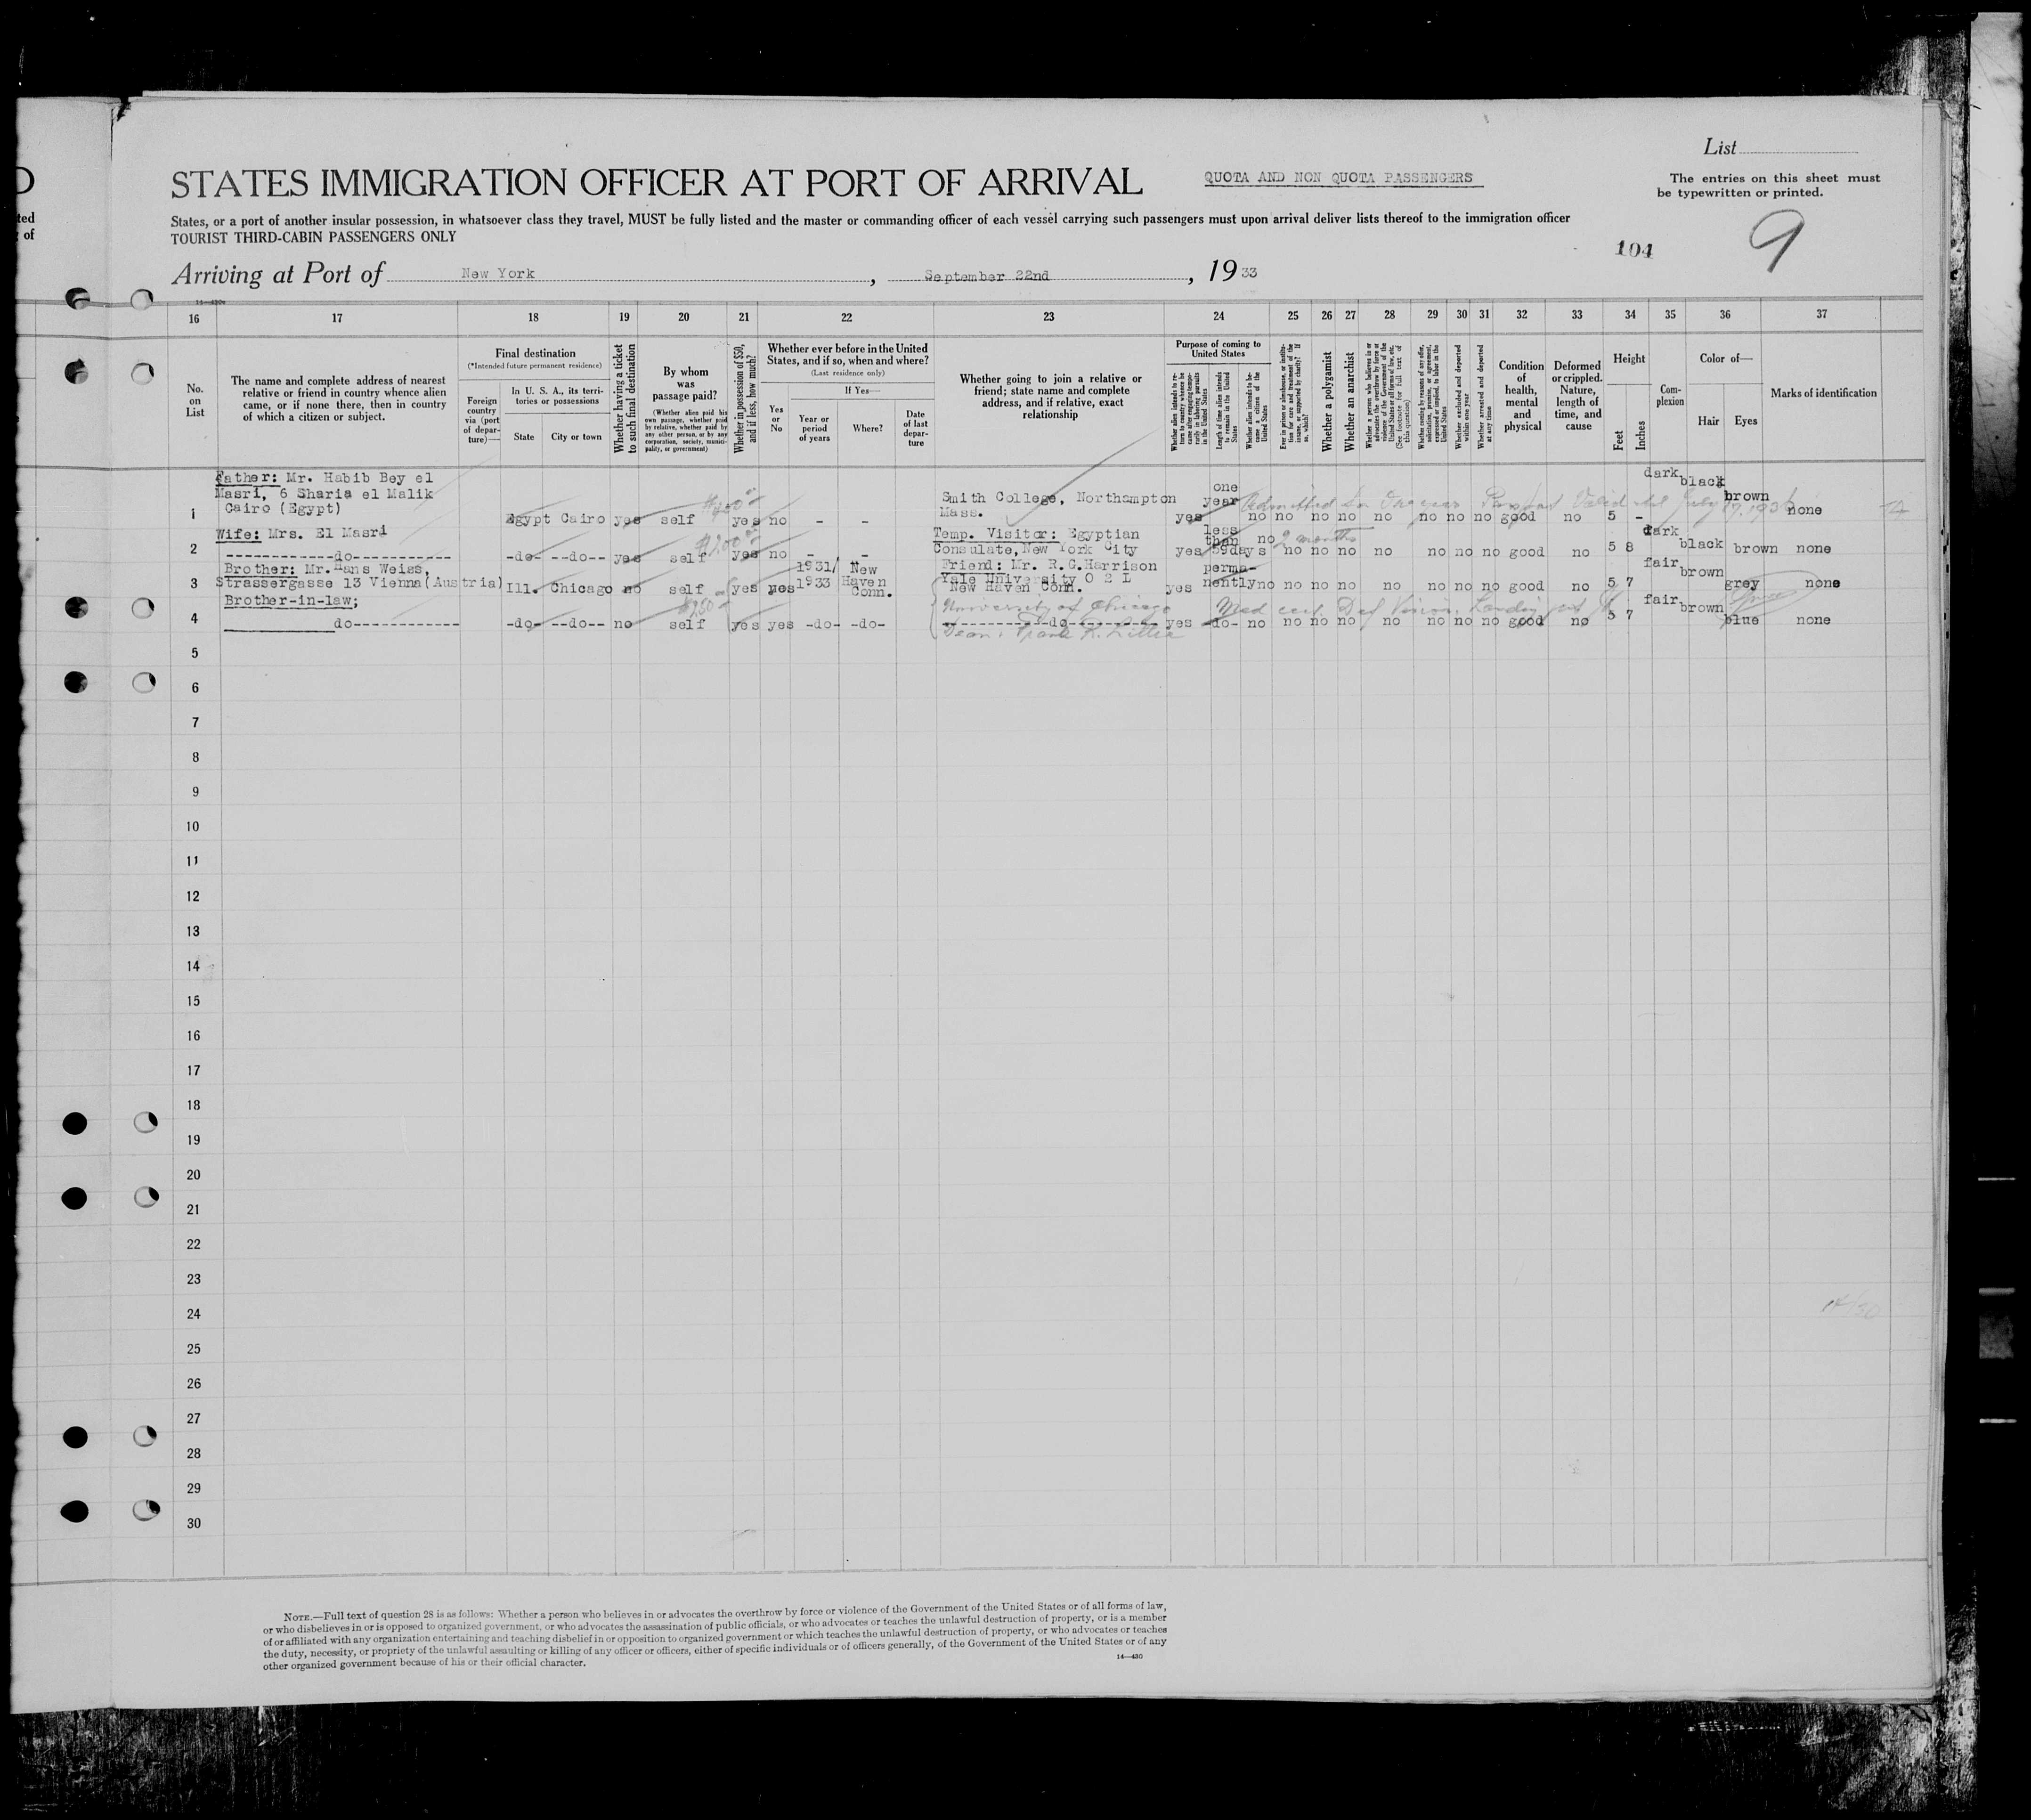 List
STATES IMMIGRATION OFFICER AT PORT OF ARRIVAL
QUOTA AND NON QUOTA PASSENGERS
The entries on this sheet must
be typewritten or printed.
ted
of
States, or a port of another insular possession, in whatsoever class they travel, MUST be fully listed and the master or commanding officer of each vessel carrying such passengers must upon arrival deliver lists thereof to the immigration officer
TOURIST THIRD-CABIN PASSENGERS ONLY
104
9
Arriving at Port of New York, September 22nd, 1933
16 17 18 19 20 21 22 23 24 25 26 27 28 29 30 31 32 33 34 35 36 37
No.
on
List
The name and complete address of nearest
relative or friend in country whence alien
came, or if none there, then in country
of which a citizen or subject.
Final destination
(*Intended future permanent residence)
Foreign
country
via (port
of depar-
ture)—
In U. S. A., its terri-
tories or possessions
State
City or town
Whether having a ticket
to such final destination
By whom
was
passage paid?
(Whether alien paid his
own passage, whether paid
by relative, whether paid by
any other person, or by any
corporation, society, munici-
pality, or government)
Whether in possession of $50,
and if less, how much?
Whether ever before in the United
States, and if so, when and where?
(Last residence only)
Yes
or
No
If Yes—
Year or
period
of years
Where?
Date
of last
depar-
ture
Whether going to join a relative or
friend; state name and complete
address, and if relative, exact
relationship
Purpose of coming to
United States
Whether alien intends to re-
turn to country whence he
came after engaging tempo-
rarily in laboring pursuits
in the United States
Length of time alien intends
to remain in the United
States
Whether alien intends to be-
come a citizen of the
United States
Ever in prison or almshouse, or institu-
tion for care and treatment of the
insane, or supported by charity? If
so, which?
Whether a polygamist
Whether an anarchist
Whether a person who believes in or
advocates the overthrow by force or
violence of the Government of the
United States or all forms of law, etc.
(See footnote for full text of
this question)
Whether coming by reasons of any offer,
solicitation, promise, or agreement,
expressed or implied, to labor in the
United States
Whether excluded and deported
within one year
Whether arrested and deported
at any time
Condition
of
health,
mental
and
physical
Deformed
or crippled.
Nature,
length of
time, and
cause
Height
Feet
Inches
Com-
plexion
Color of—
Hair
Eyes
Marks of identification
Father: Mr. Habib Bey el
Masri, 6 Sharia el Malik
Cairo (Egypt)
1 Egypt Cairo yes self yes no - - Smith College, Northampton
Mass. yes one
year no no no no no no no no good no 5 - dark black brown none
Wife: Mrs. El Masri
2 ------------do----------- -do- --do-- yes self yes no - - Temp. Visitor: Egyptian
Consulate, New York City yes less
than
59days no no no no no no no no good no 5 8 dark black brown none
2 months
Brother: Mr. Hans Weiss,
3 Strassergasse 13 Vienna(Austria) Ill. Chicago no self yes yes 1931/
1933 New
Haven
Conn. Friend: Mr. R.G.Harrison
Yale University O 2 L
New Haven Conn. yes perma-
nently no no no no no no no no good no 5 7 fair brown grey none
Brother-in-law;
University of Chicago
4 ----------do------------ -do- --do-- no self yes yes -do- -do- ----------do---------- yes -do- no no no no no no no no good no 5 7 fair brown blue none
5
6
7
8
9
10
11
12
13
14
15
16
17
18
19
20
21
22
23
24
25
26
27
28
29
30
NOTE.—Full text of question 28 is as follows: Whether a person who believes in or advocates the overthrow by force or violence of the Government of the United States or of all forms of law,
or who disbelieves in or is opposed to organized government, or who advocates the assassination of public officials, or who advocates or teaches the unlawful destruction of property, or is a member
of or affiliated with any organization entertaining and teaching disbelief in or opposition to organized government or which teaches the unlawful destruction of property, or who advocates or teaches
the duty, necessity, or propriety of the unlawful assaulting or killing of any officer or officers, either of specific individuals or of officers generally, of the Government of the United States or of any
other organized government because of his or their official character.
14—430